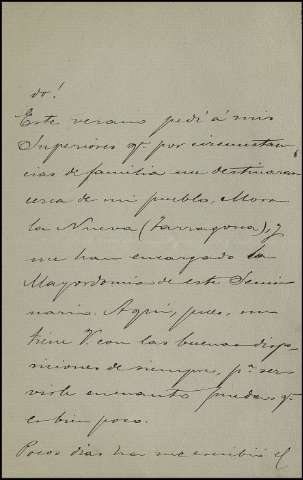 do!
Este verano pedí á mis
Superiores q. por circunstan
cias de familia me destinaran
cerca de mi pueblo, Mora
la Nueva (Tarragona), y
me han encargado la
Mayordomía de este Semi
nario. Aquí, pues, me
tiene V. con las buenas dispo
siciones de siempre, pª ser
virle en cuanto pueda, q.
es bien poco.
Pocos días ha me escribió el